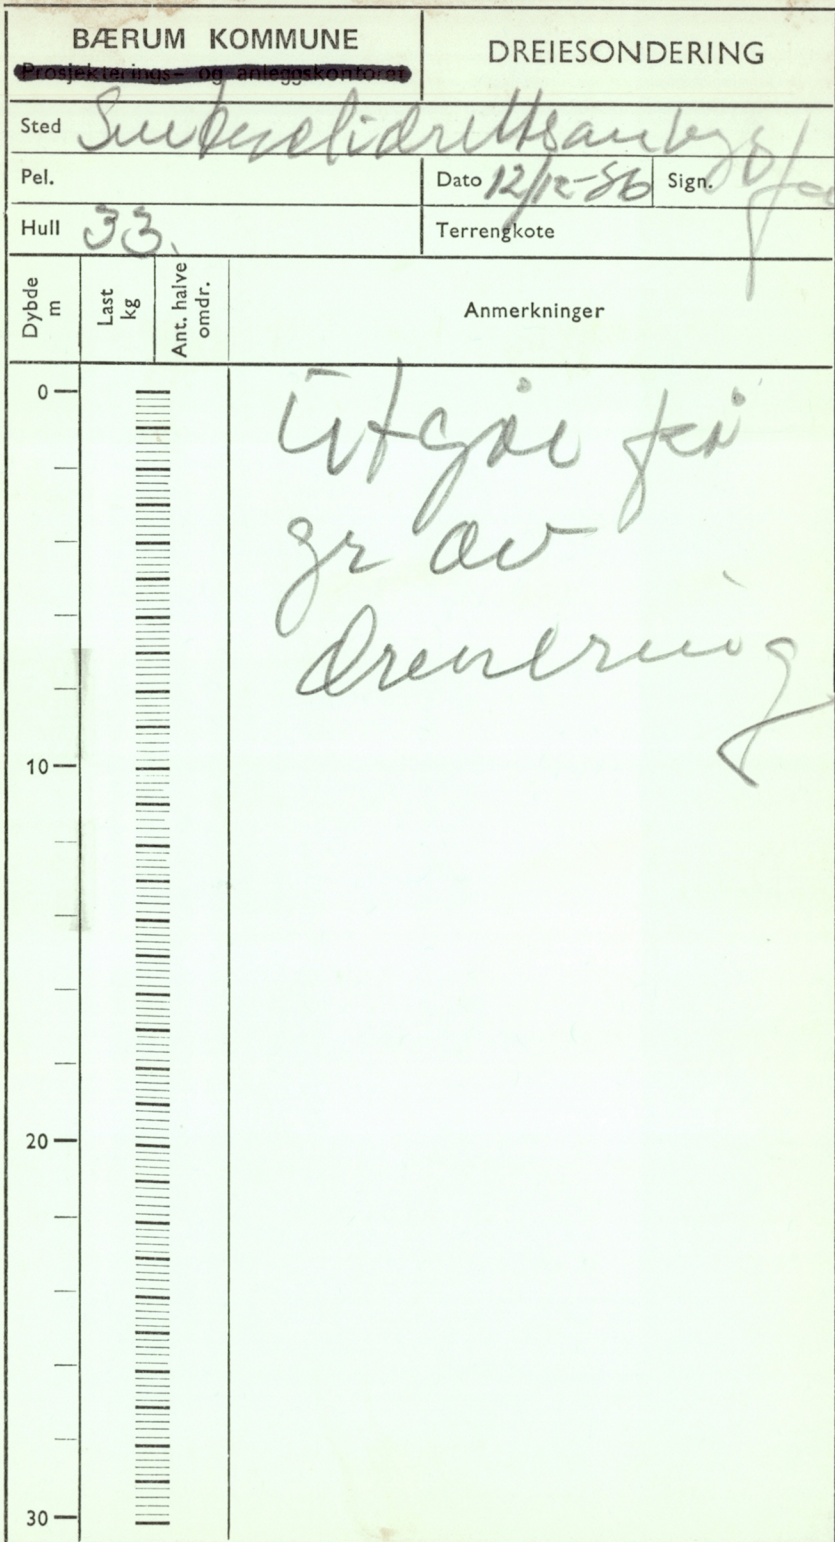 BÆRUM KOMMUNE
Prosjekterings- og anleggskontoret
DREIESONDERING
Sted
Pel.
Dato 12/12-86 Sign.
Hull 33.
Terrengkote
Dybde m
Last kg
Ant. halve omdr.
Anmerkninger
0
Utgår på
gr av
drenering
10
20
30